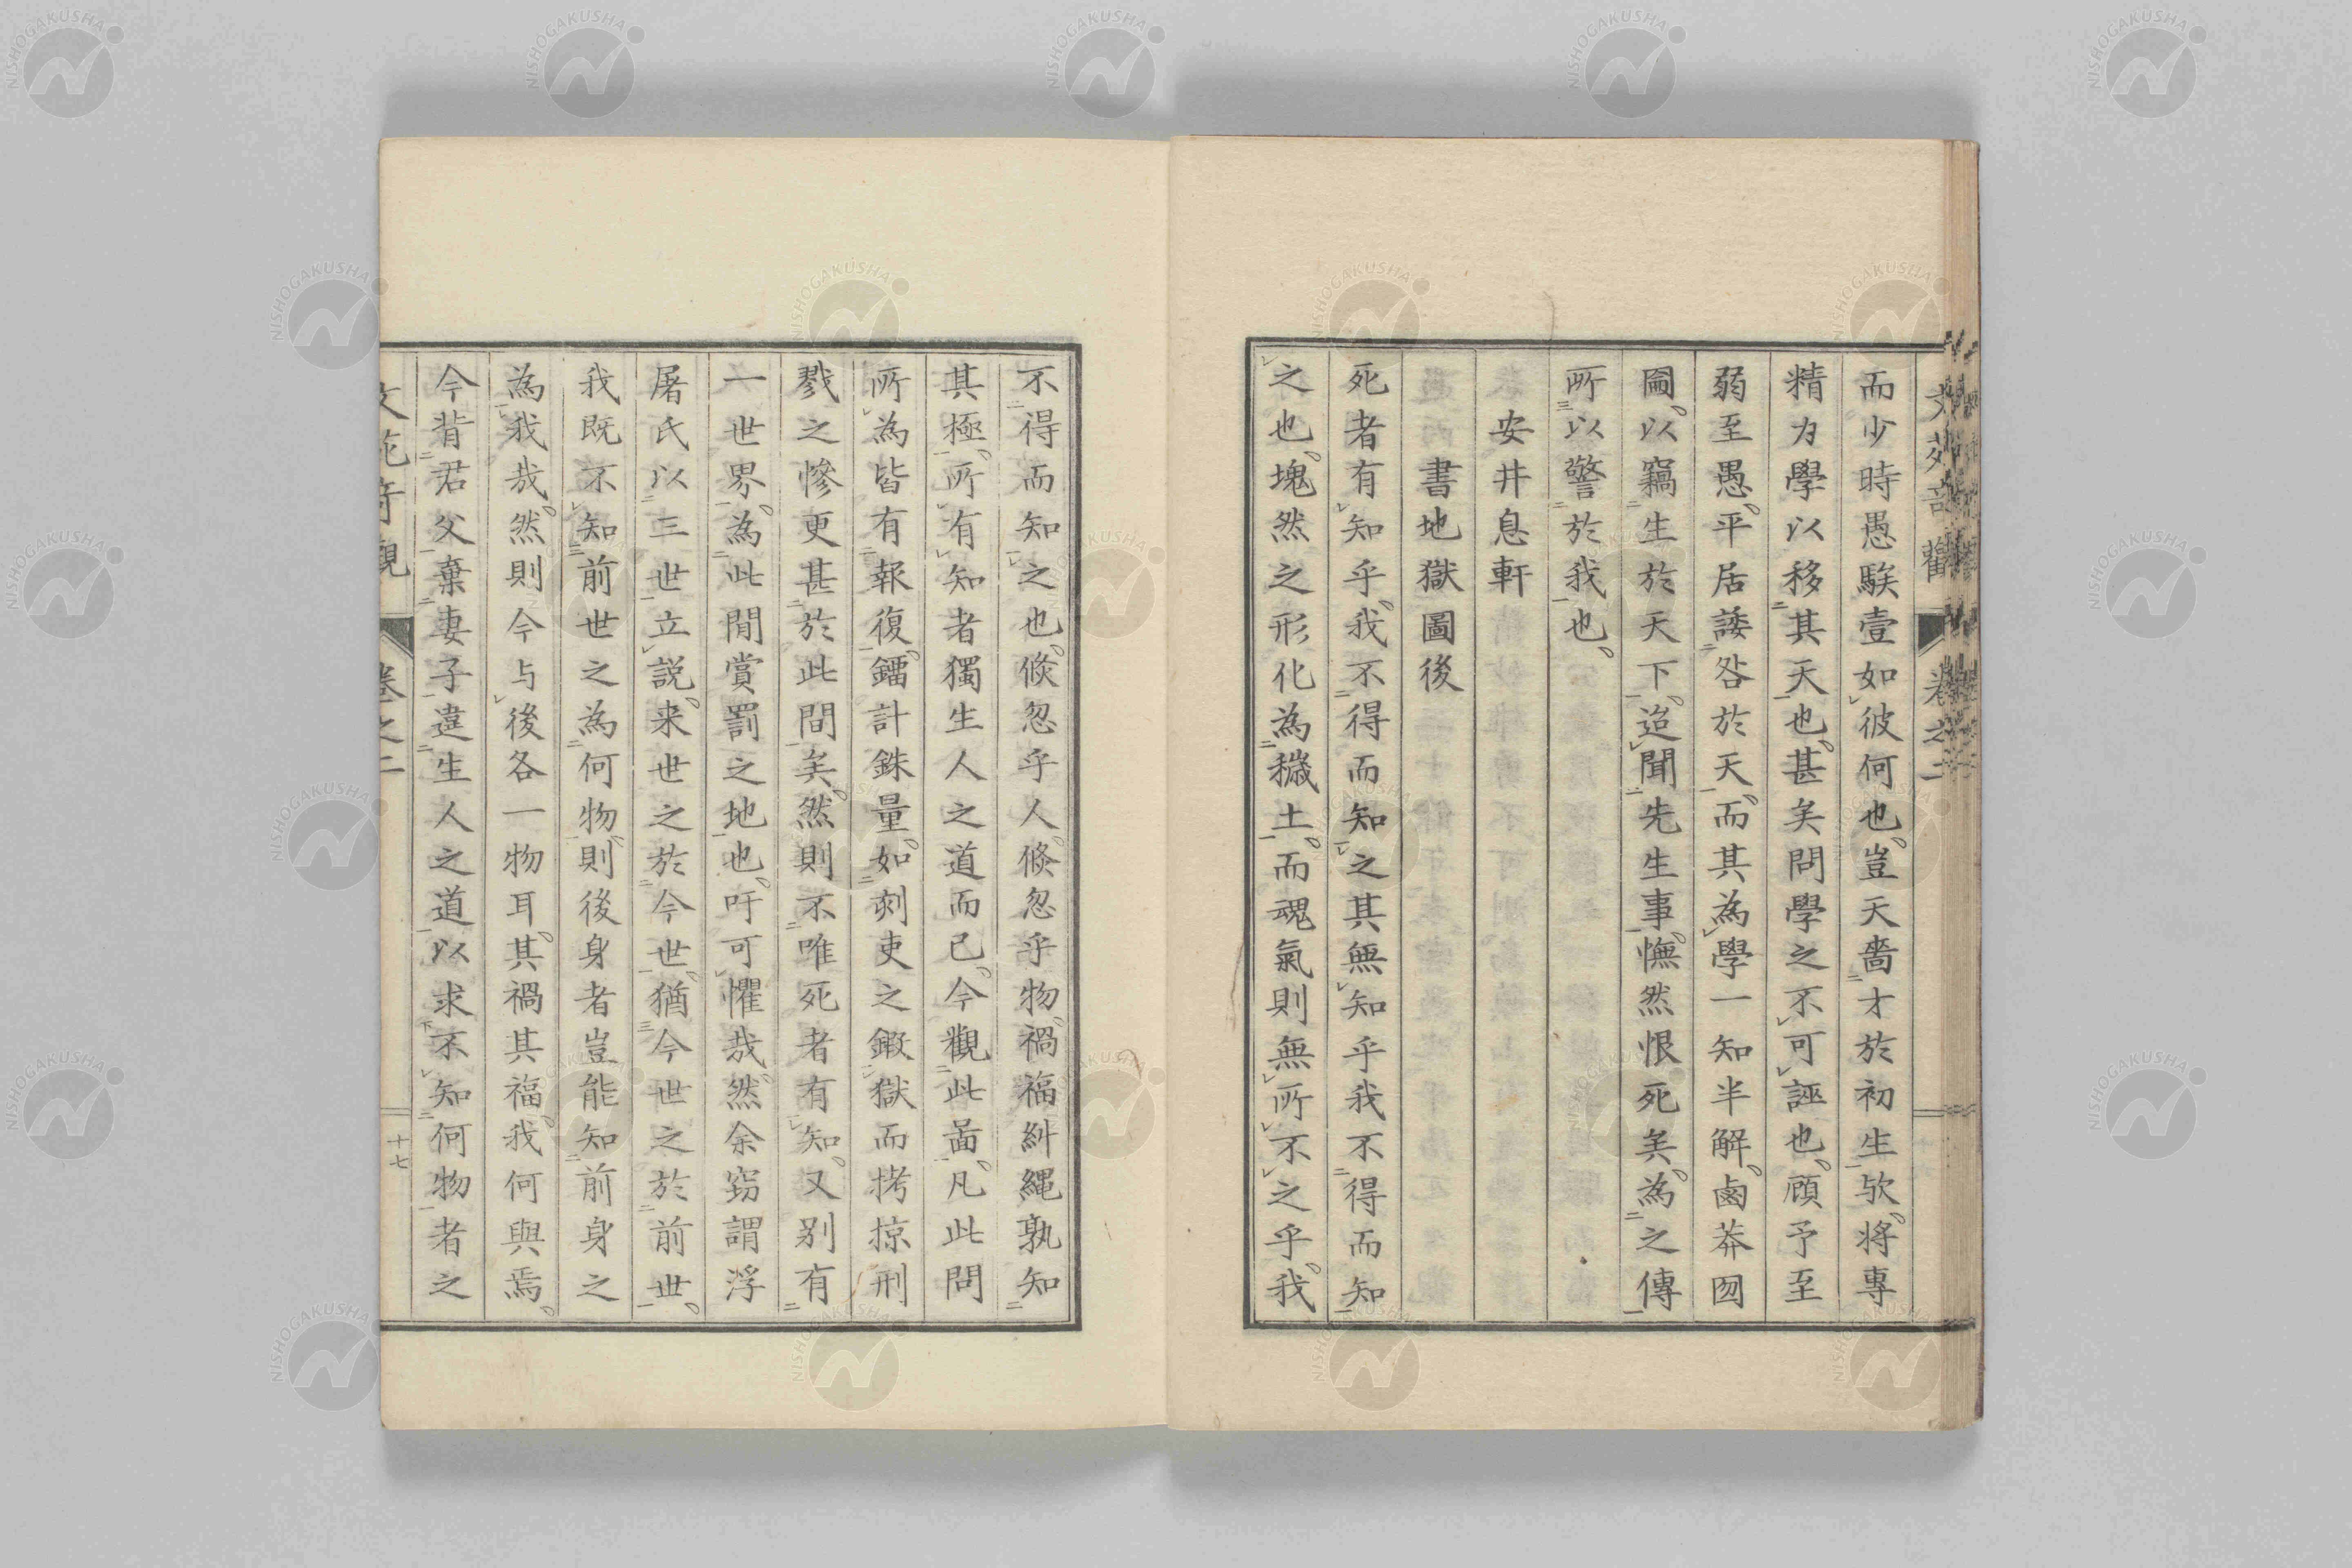 而少時愚騃壹如彼何也豈天嗇才於初生欤将專
精力學以移其天也甚矣問學之不可誣也頋予至
弱至愚平居諉咎於天而其為學一知半解鹵莽囫
圇以竊生於天下迨聞先生事憮然恨死矣為之傳
所以警於我也
安井息軒
書地獄圖後
死者有知乎我不得而知之其無知乎我不得而知
之也塊然之形化為穢土而魂氣則無所不之乎我
不得而知之也倐忽乎人倐忽乎物禍福糾縄孰知
其極所有知者獨生人之道而已今觀此啚凡此問
所為皆有報復鐳計銖量如刻吏之鍜獄而拷掠刑
戮之惨更甚於此間矣然則不唯死者有知又别有
一世界為此閒賞罰之地也吁可懼哉然余窃謂浮
屠氏以三世立説来世之於今世猶今世之於前世
我既不知前世之為何物則後身者豈能知前身之
為我哉然則今与後各一物耳其禍其福我何與焉
今背君父棄妻子違生人之道以求不知何物者之
卷之二
十七